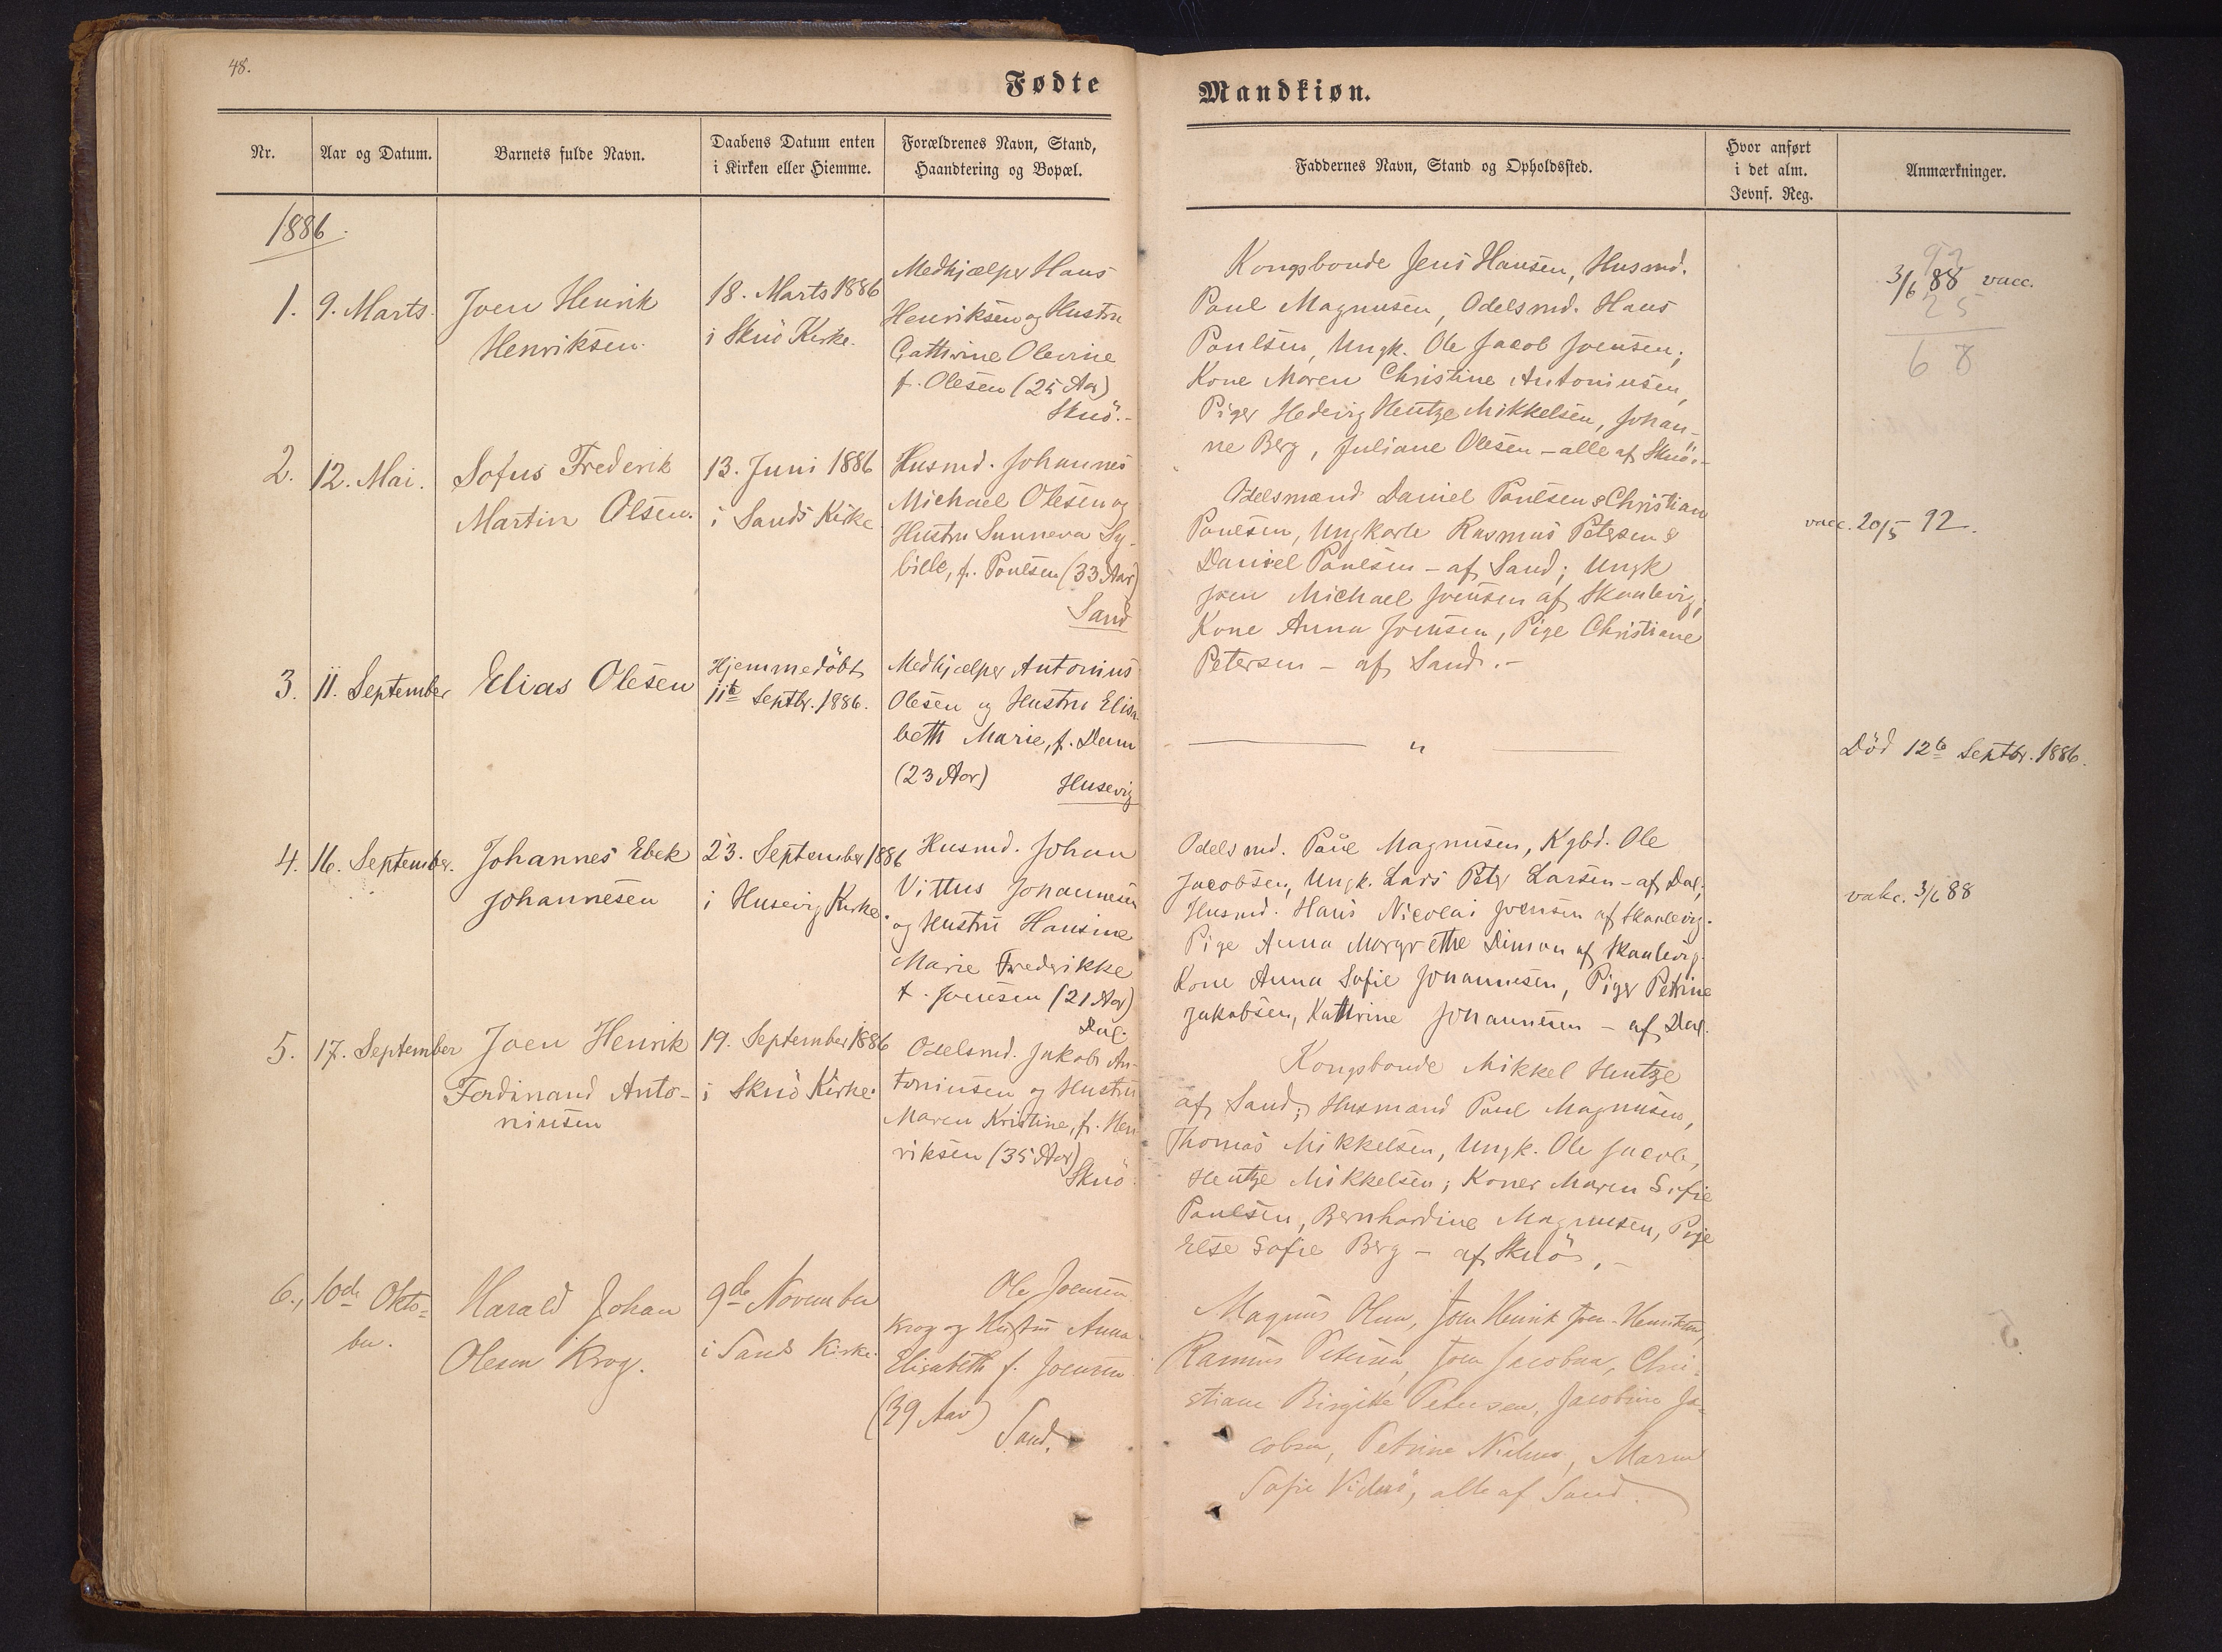 48.
Fødte
Mandkiøn.
Nr.
Aar og Datum.
Barnets fulde Navn.
Daabens Datum enten
i Kirken eller Hiemme.
Forældrenes Navn, Stand,
Haandtering og Bopæl.
Faddernes Navn, Stand og Opholdssted.
Hvor anført
i det alm.
Jevnf. Reg.
Anmærkninger.
1886.
1.
9. Marts.
Joen Henrik
Henriksen.
18. Marts 1886
i Skuö Kirke.
Medhjælper Hans
Henriksen og Hustru
Cathrine Olevine
f. Olesen (25 Aar)
Skuö.-
Kongsbonde Jens Hansen, Husmd.
Poul Magnusen, Odelsmd. Hans
Poulsen, Ungk. Ole Jacob Joensen;
Kone Maren Christine Antoniusen,
Piger Hedevig Hentze Mikkelsen, Johan-
ne Berg, Juliane Olesen - alle af Skuö.-
92
3/6 88 vacc.
25
68
2.
12. Mai.
Sofus Frederik
Martin Olsen.
13. Juni 1886
i Sands Kirke
Husmd. Johannes
Michael Olesen og
Hustru Sunneva Sy-
bille, f. Poulsen (33 Aar)
Sand
Odelsmænd Daniel Poulsen & Christian
Poulsen, Ungkarle Rasmus Petersen &
Daniel Poulsen - af Sand; Ungk
Joen Michael Joensen af Skaalevig;
Kone Anna Joensen, Pige Christiane
Petersen - af Sand.-
vacc. 20/5 92.
3.
11. September
Elias Olesen
Hjemmedöbt
11te Septbr. 1886.
Medhjælper Antonius
Olesen og Hustru Elisa-
beth Marie, f. Dam
(23 Aar)
Husevig
"
Död 12te Septbr. 1886.
4.
16. September.
Johannes Ebek
Johannesen
23. September 1886
i Husevig Kirke.
Husmd. Johan
Vittus Johannesen
og Hustru Hansine
Marie Frederikke
f. Joensen (21 Aar)
Dal.
Odelsmd. Poul Magnusen, Kgbd. Ole
Jacobsen, Ungk. Lars Peter Larsen - af Dal;
Husmd. Hans Nicolai Joensen af Skaalevig.
Pige Anna Margrethe Dimon af Skaalevig.
Kone Anna Sofie Johannesen, Piger Petrine
Jakobsen, Kathrine Johannesen - af Dal.
vakc. 3/6 88
5.
17. September
Joen Henrik
Ferdinand Anto-
niusen
19. September 1886
i Skuö Kirke.
Odelsmd. Jakob An-
toniusen og Hustru
Maren Kristine, f. Hen-
riksen (35 Aar)
Skuö.
Kongsbonde Mikkel Hentze
af Sand; Husmand Poul Magnusen,
Thomas Mikkelsen, Ungk. Ole Jacob
Hentze Mikkelsen; Koner Maren Sofie
Poulsen, Bernhardine Magnusen, Pige
Else Sofie Berg - af Skuö.-
6.,
10de Okto-
ber.
Harald Johan
Olesen Krog.
9de November
i Sands Kirke.
Ole Joensen
Krog og Hustru Anna
Elisabeth f. Joensen
(39 Aar)
Sand.
Magnus Olsen, Joen Henrik Joen-Henriksen,
Rasmus Petersen, Joen Jacobsen, Chri-
stiane Birgitte Petersen, Jacobine Ja-
cobsen, Petrine Nielsen, Maren
Sofie Viderö, alle af Sand.